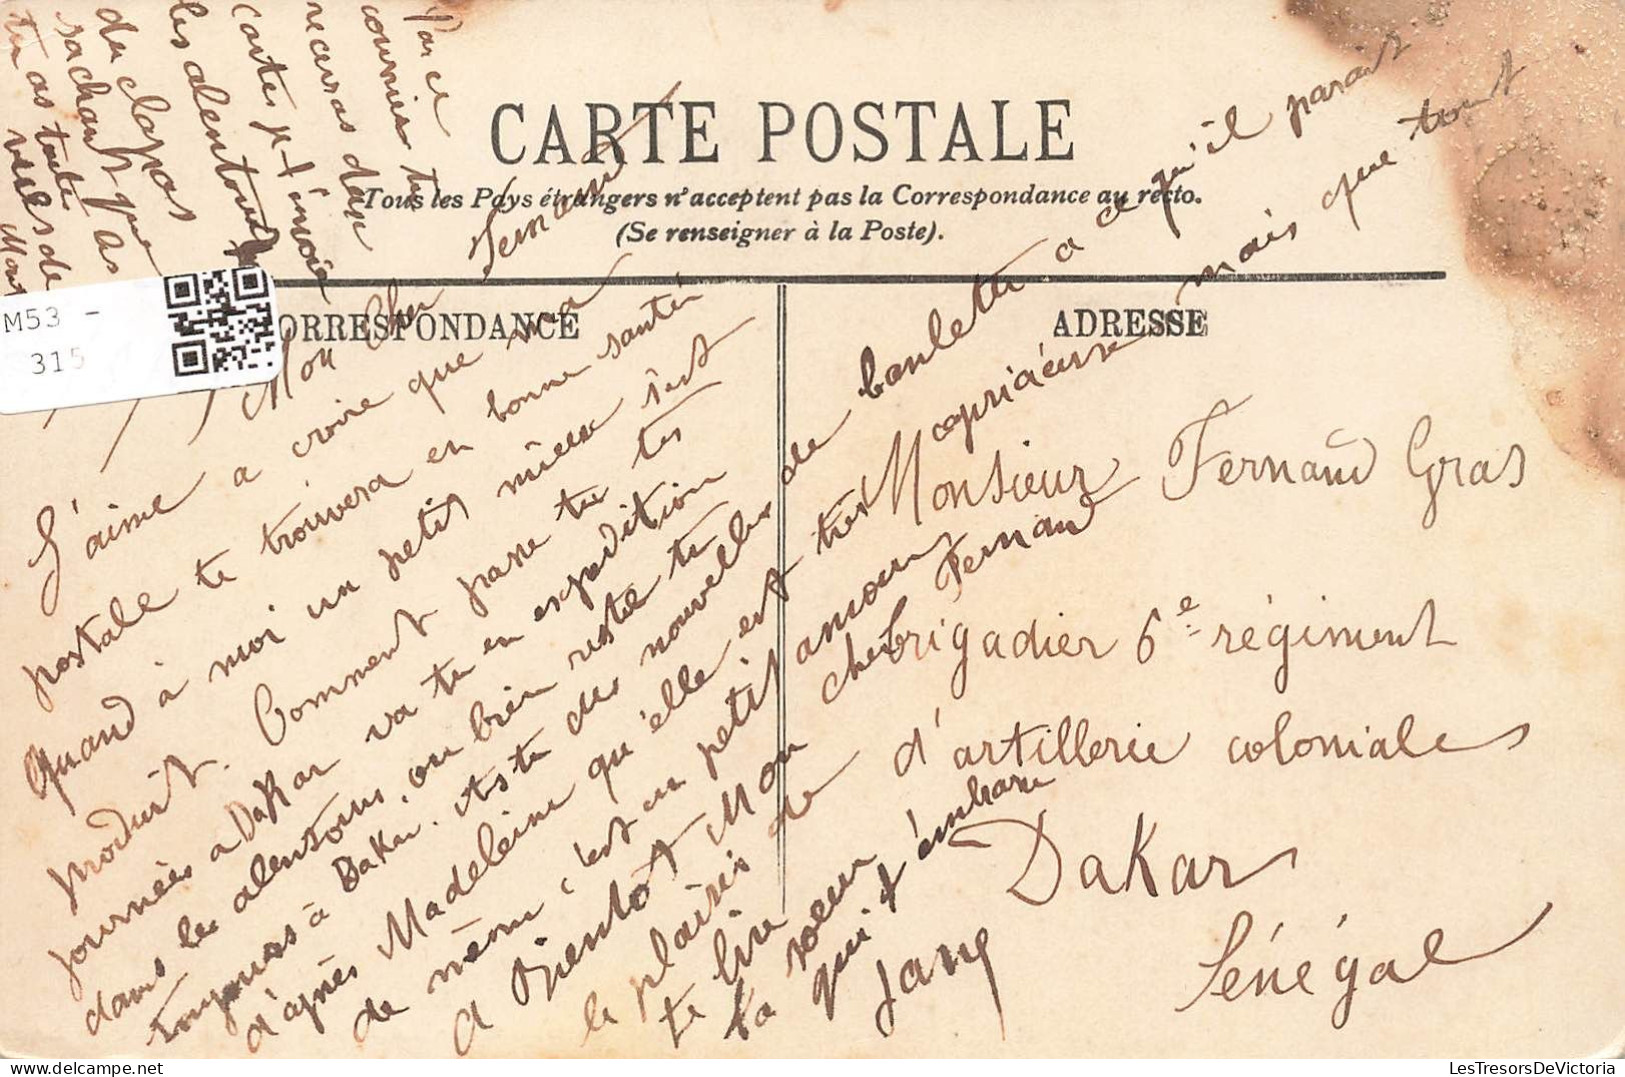 CARTE POSTALE
Tous les Pays étrangers n'acceptent pas la Correspondance au recto.
(Se renseigner à la Poste).
CORRESPONDANCE
ADRESSE
M53 -
315
Par ce
courrier tu
recevras dix
cartes je t'envoie
les alentours
du clapas
sachant que
tu as toute
vues de
Mon Cher Fernand
J'aime a croire que ma
postale te trouvera en bonne santée
Quand à moi un petit mieux s'est
produit. Comment passe tu tes
journées a Dakar va tu en expedition
dans les alentours, ou bien reste tu
toujours à Dakar. As tu des nouvelles de
d'après Madeleine qu'elle est très
de même c'est un petit amour
A Bientot Mon cher Fernand
le plaisir de
te lire
Ta soeur
qui t'embrasse
Jany
boulette a ce qu'il parait
capricieuse mais que tout
Monsieur Fernand Gras
brigadier 6e régiment
d'artillerie coloniale
Dakar
Sénégal
LesTresorsDeVictoria